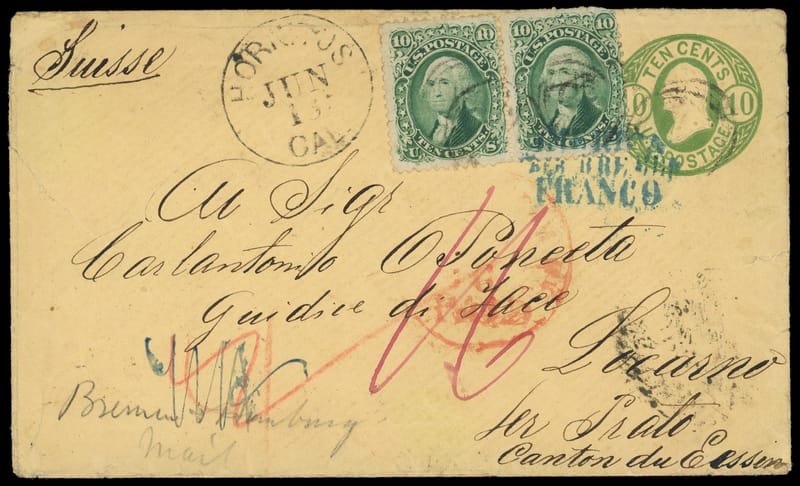 Suisse
HORNITOS
JUN
CAL.
10 10
U.S. POSTAGE
TEN CENTS
U S
10 10
U.S. POSTAGE
TEN CENTS
U S
TEN CENTS
10 10
U.S. POSTAGE
FRANCO
Al Sigr
Carlantonio
Guidice di Pace
Locarno
per Prato
Canton du Tessin
Bremen
Mail